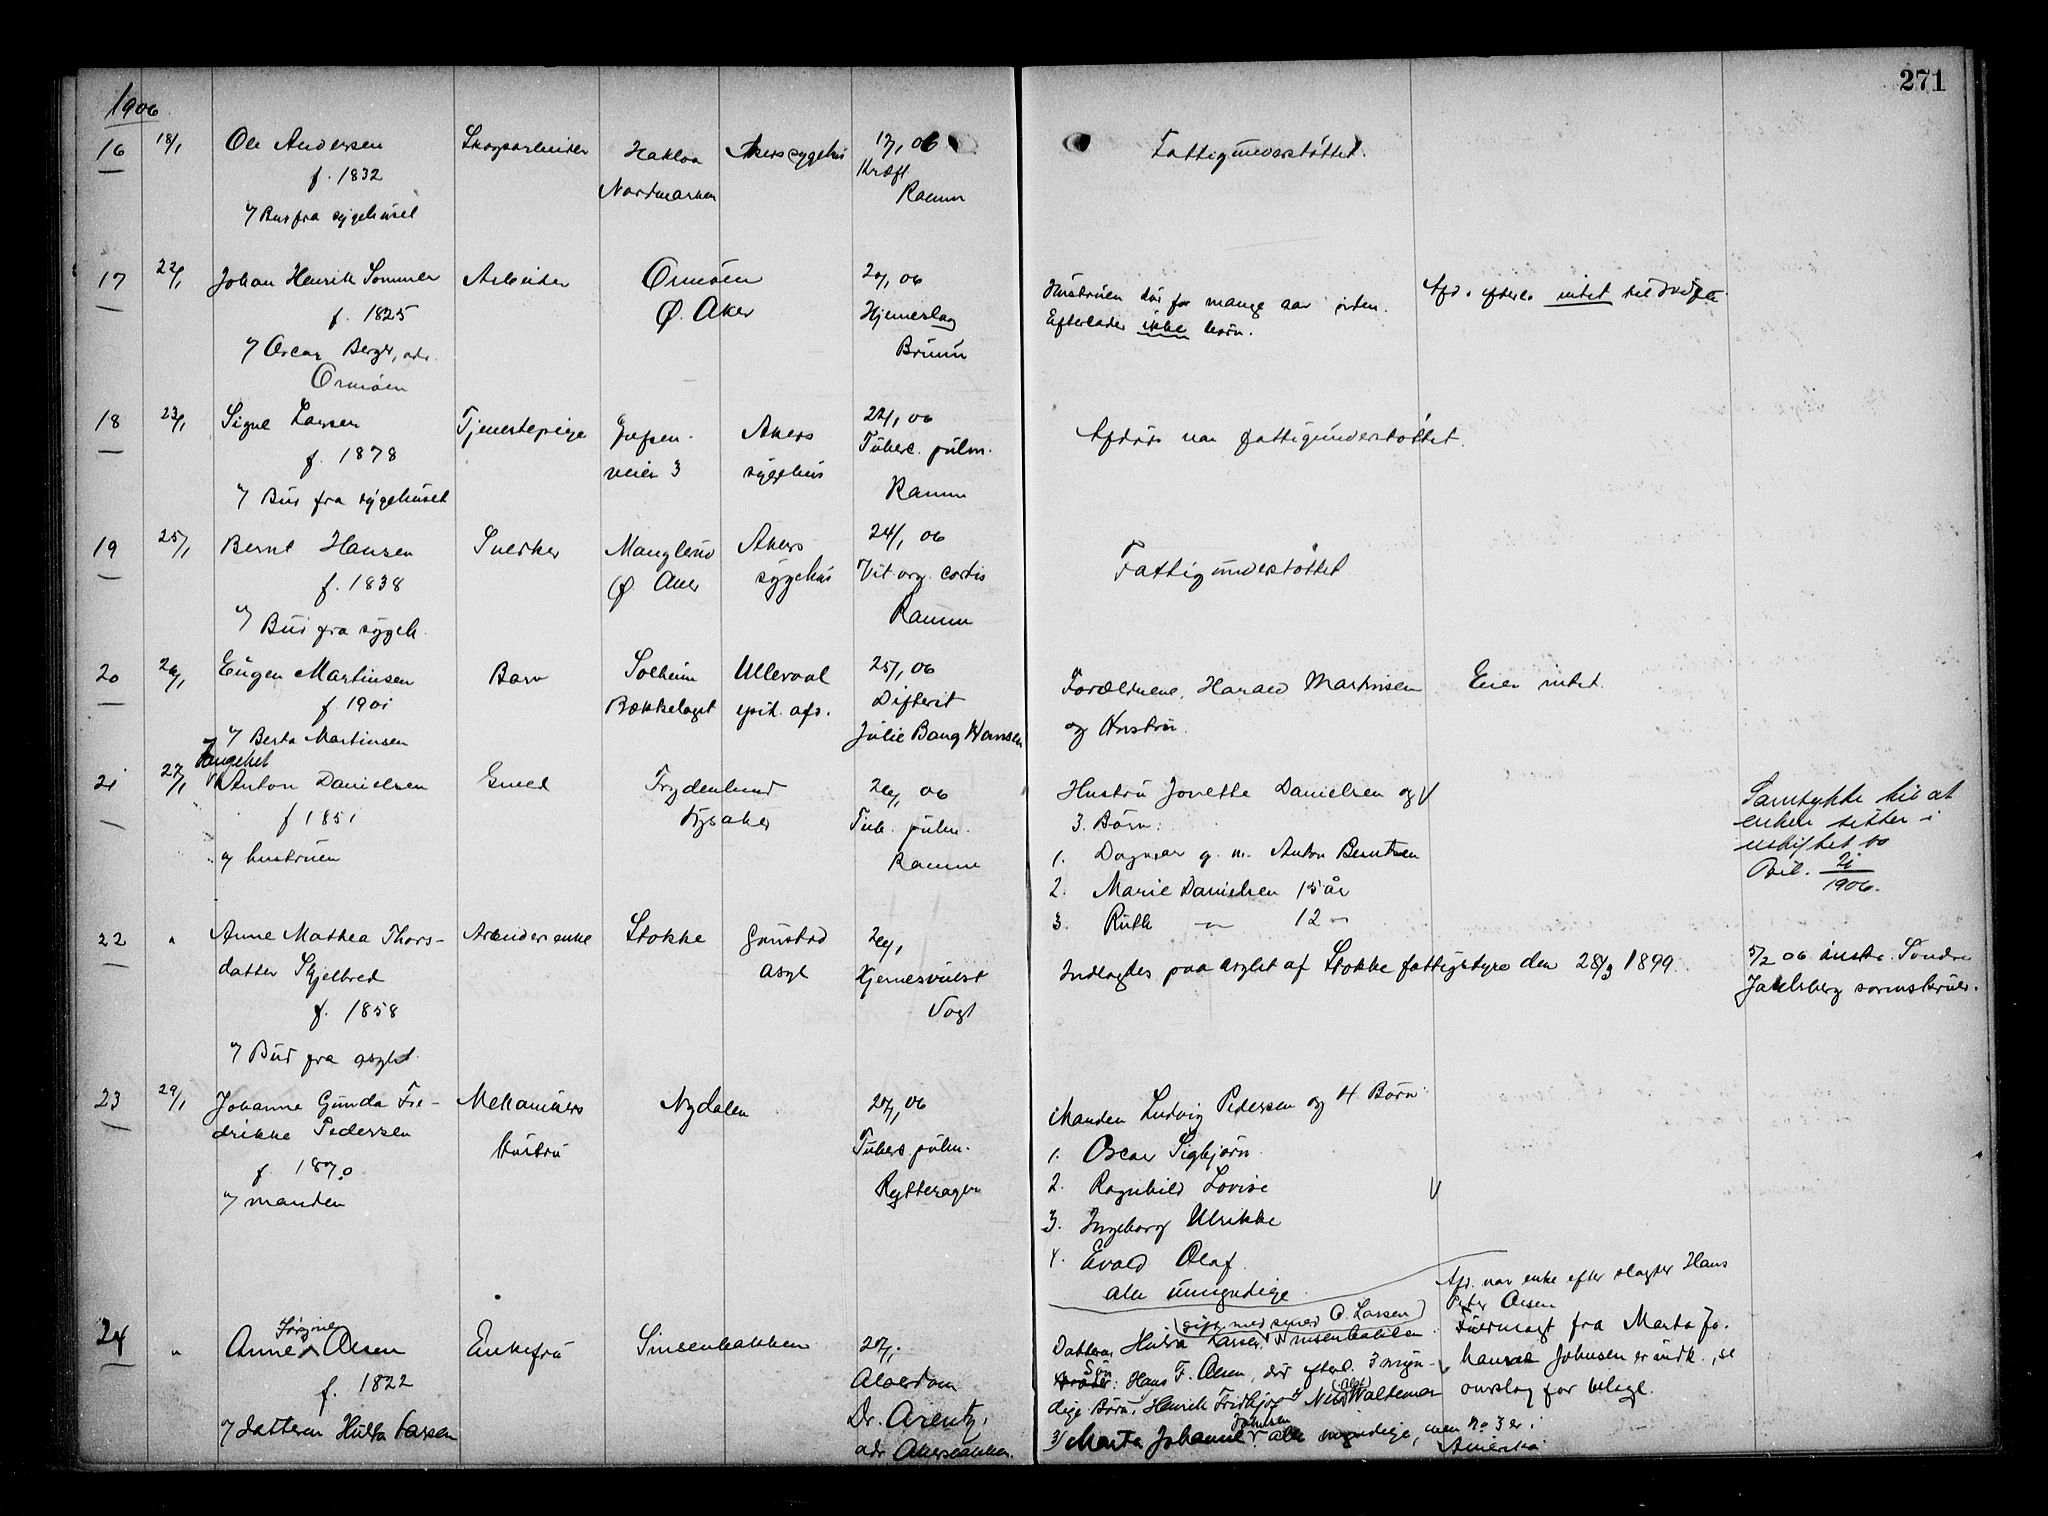 271
1906
16 18/1 Ole Andersen Skogsarbeider Hakloa Akers sygehus 17/1 06 Fattigunderstøttet.
f. 1832 Nordmarken Kræft
v/ Bud fra sygehuset Ramm
17 22/1 Johan Henrik Sommer Arbeider Ormøen 20/1 06 Hustruen død for mange aar siden. Afd. efterl. intet til skifte.
f. 1825 Ø. Aker Hjerneslag Efterlader ikke børn.
v/ Oscar Berger, adr. Bruun
Ormøen
18 23/1 Signe Larsen Tjenestepige veien 3 Akers sygehus 22/1 06 Afdøde var fattigunderstøttet.
f. 1878 Tuberc. pulm.
v/ Bud fra sygehuset Ramm
19 25/1 Bernt Hansen Snedker Manglerud Akers 24/1 06 Fattigunderstøttet
f. 1838 Ø. Aker sygehus Vit. org. cordis
v/ Bud fra sygeh. Ramm
20 26/1 Eugen Martinsen Barn Solheim Ullevaal 25/1 06 Forældrene, Harald Martinsen Eier intet.
f. 1901 Bækkelaget epid. afd. Difterit og Hustru.
v/ Berta Martinsen Julie Bang Hansen
21 27/1 Anton Danielsen Smed Frydenlund 26/1 06 Hustru Jonette Danielsen og Samtykke til at
f 1851 Lysaker Tub. pulm. 3. Børn: enken sitter i
v/ hustruen Ramm 1. Dagmar g. m. Anton Berntsen uskiftet bo
2. Marie Danielsen 15 år Bil. 21/1906.
3. Ruth — 12 —
22 " Anne Mathea Thors- Arbeiderenke Stokke Gaustad 26/1 Indlagdes paa asylet af Stokke fattigstyre den 28/3 1899. 5/2 06 Søndre
datter Skjelbred asyl Hjernesvulst Jarlsberg sorenskriver.
f. 1858 Vogt
v/ Bud fra asylet
23 29/1 Johanne Gunda Fre- Mekanikers Nydalen 27/1 06 Manden Ludvig Pedersen og 4 Børn:
drikke Pedersen hustru Tuberc. pulm. 1. Oscar Sigbjørn
f. 1870 Rytterager 2. Ragnhild Lovise
v/ manden 3. Ingeborg Ulrikke
4. Evald Olaf.
alle umyndige
24 " Anne Jørgine Olsen Enkefru Sinsenbakken 27/1 Datteren Hulda Larsen, Sinsenbakken (gift med smed O. Larsen) Afd. var enke efter slagter Hans
f. 1822 Alderdom Søn: Hans F. Olsen, død efterl. 3 myn- Peter Olsen
v/ datteren Hulda Larsen Dr. Arentz, dige Børn: Henrik Fridtjof Nils (Olaf) Waldemar Fuldmagt fra Marta Jo-
adr Akersbakken. 3/ Marta Johanne Johnsen alle myndige, men no 3 er i Amerika hanne Johnsen er indk., se
omslag for bilage.